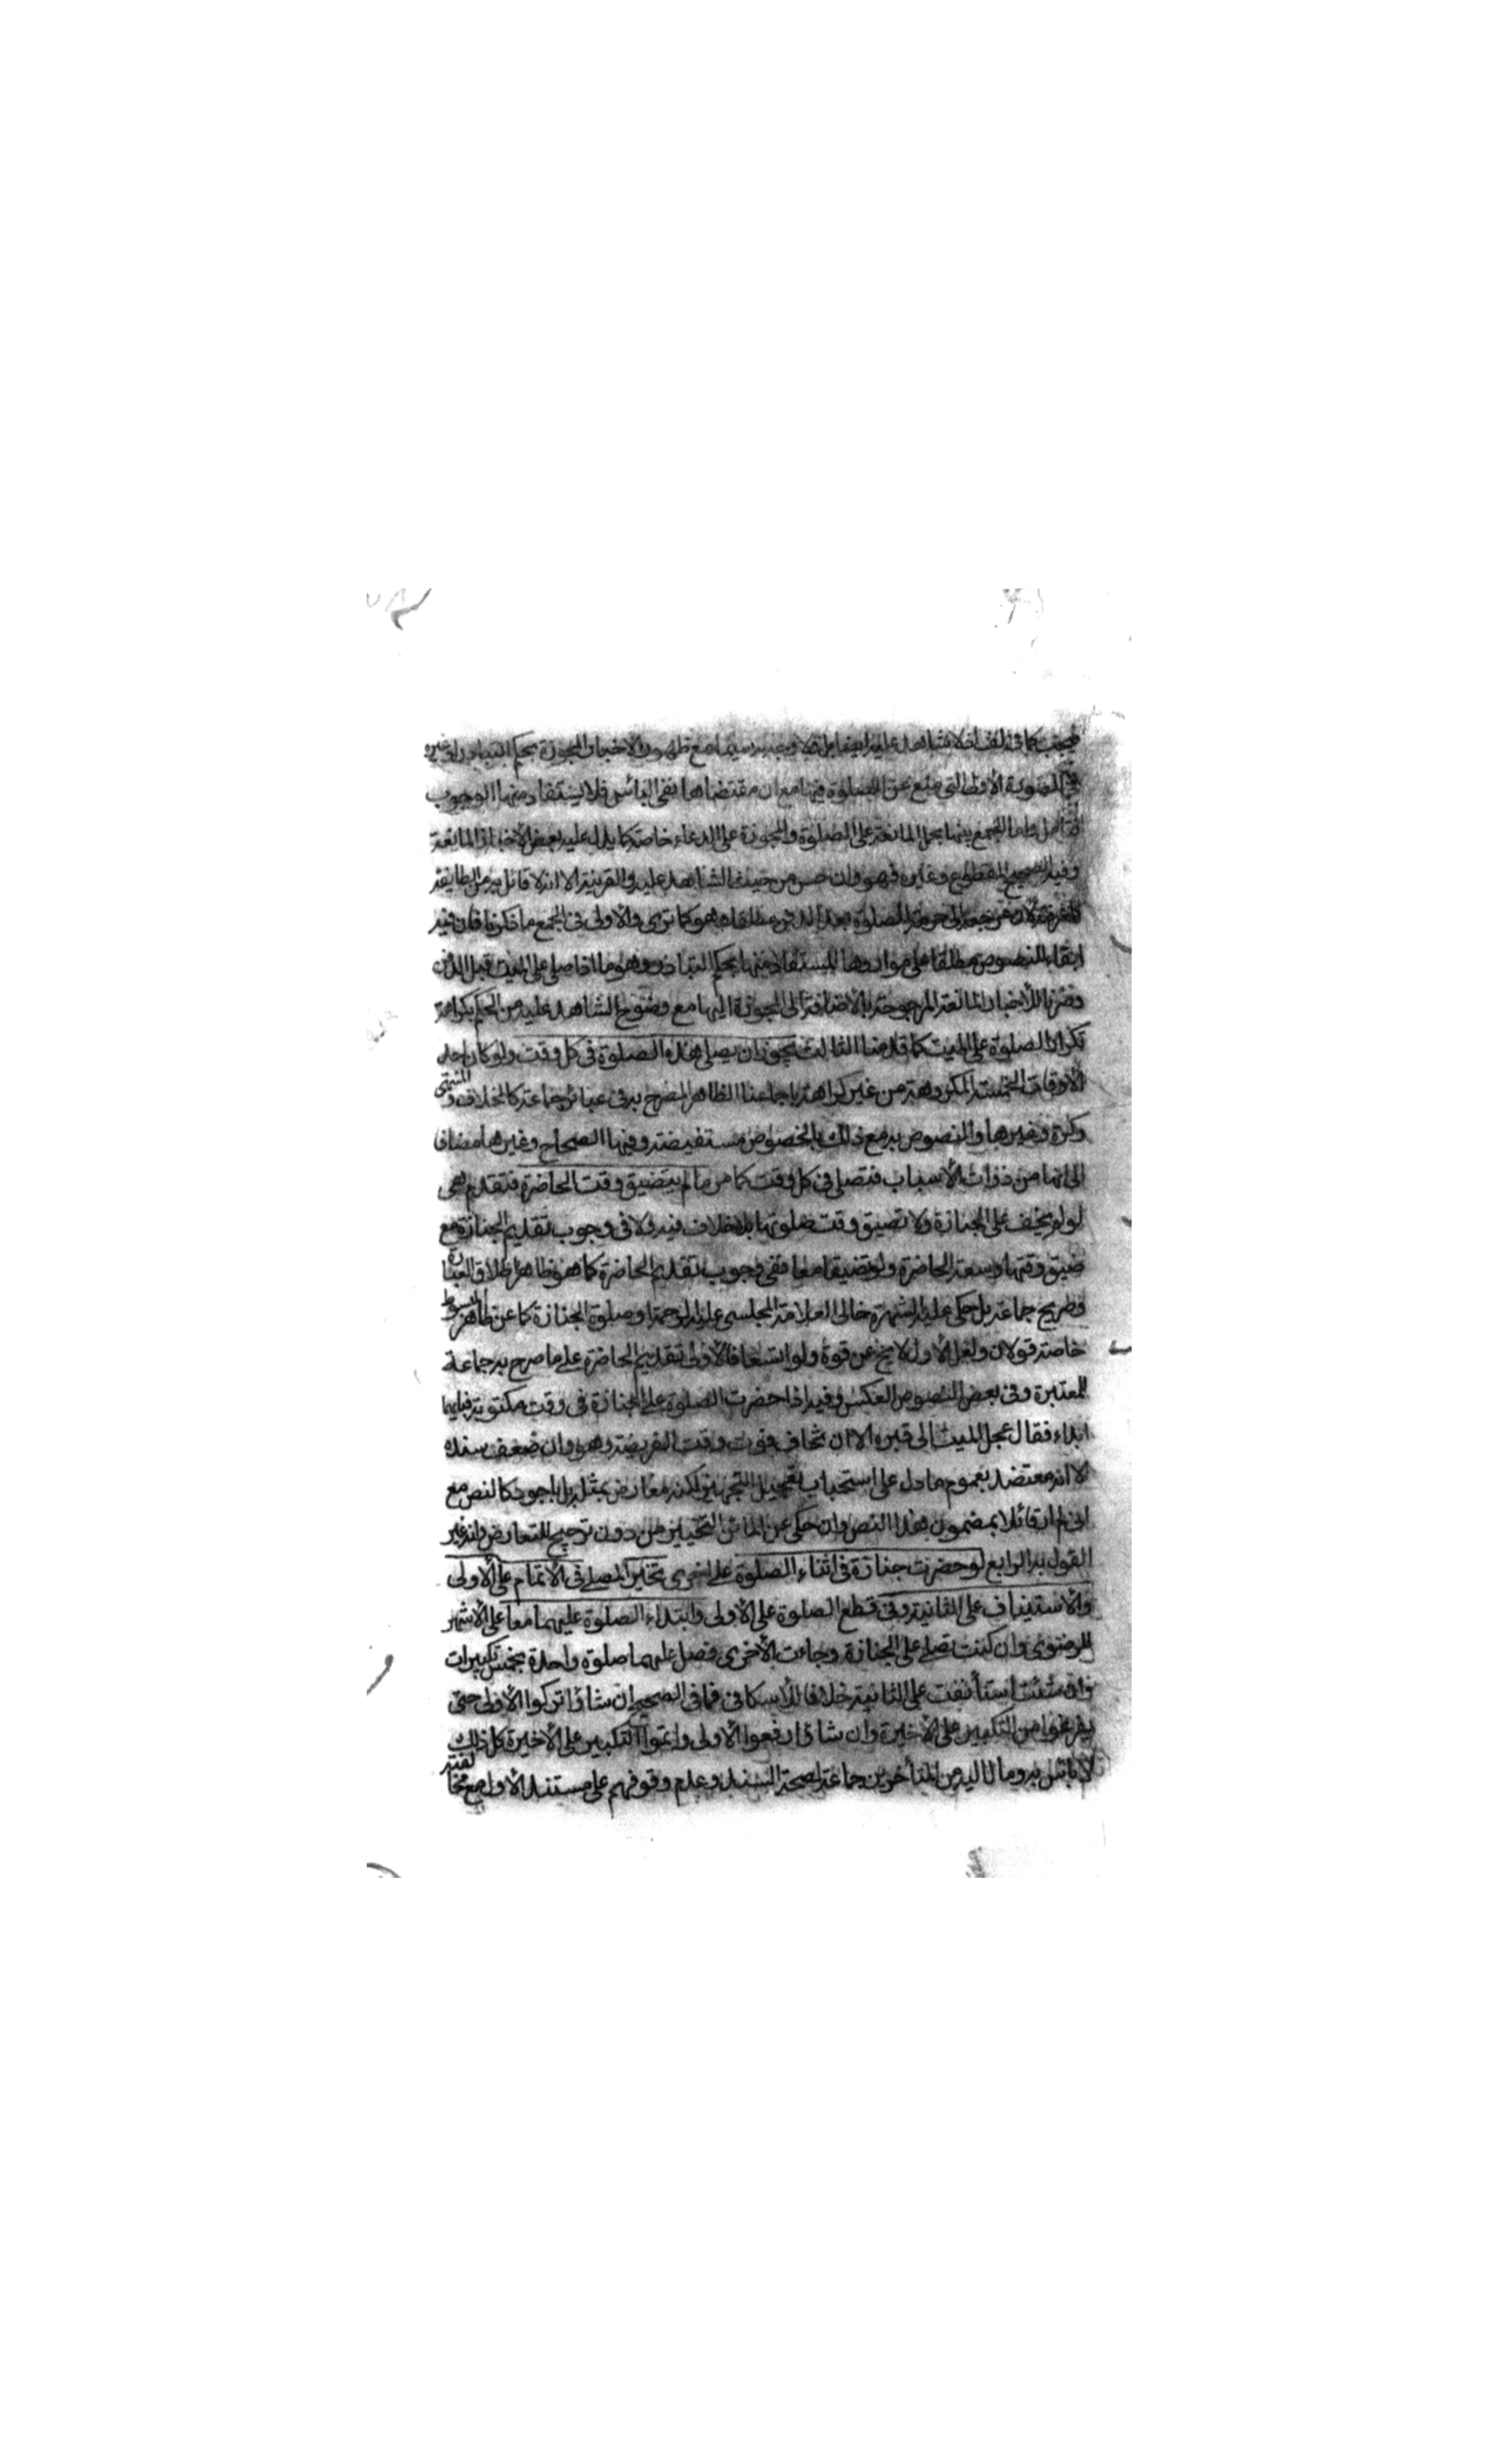 فيجب كما في لف فلا شاهد عليه بل لا وجه له سيما مع ظهور الاخبار المجوزة بحكم التبادر في غيره
في الصورة الأولى التي منع عن الصلوة فيها مع ان مقتضاها نفى البأس فلا يستفاد منها الوجوب
فتأمل واما الجمع بينهما بحمل المانعة على الصلوة والمجوزة على الدعاء خاصة كما يدل عليه بعض الأخبار المانعة
وفيه الصحيح المقطوع وغيره فهو وان حسن من حيث الشاهد عليه والقرينة الا انه لا قائل به من الطايفة
لأن مرجعه الى حرمة الصلوة بعد الدفن مطلقا وهو كما ترى والأولى في الجمع ما ذكرنا فان فيه
ابقاء النصوص مطلقا على مواردها المستفاد منها بحكم التبادر وهو ما اذا صلى على الميت قبل الدفن
وصرفا للأخبار المانعة المرجوحة بالأضافة الى المجوزة اليها مع وضوح الشاهد عليه من الحكم بكراهة
تكرار الصلوة على الميت كما قدمنا الثالث يجوز ان يصلى هذه الصلوة في كل وقت ولو كان احد
الأوقات الخمسة المكروهة من غير كراهة باجماعنا الظاهر المصرح به في عبائر جماعة كالخلاف والمنتهى
وكرة وغيرها والنصوص به مع ذلك بالخصوص مستفيضة وفيها الصحاح وغيرها مضافا
الى انها من ذوات الأسباب فتصلى في كل وقت كما مر ما لم يتضيق وقت الحاضرة فتقدم هى
لو لم يخف على الجنازة ولا تضيق وقت صلوتها بلا خلاف فيه ولا في وجوب تقديم الجنازة مع
ضيق وقتها وسعة الحاضرة ولو تضيقا معا ففى وجوب تقديم الحاضرة كما هو ظاهر اطلاق العبارة
وصريح جماعة بل حكى عليه الشهرة خالى العلامة المجلسى عليه الرحمة او صلوة الجنازة كما عن ظاهر المبسوط
خاصة قولان ولعل الأول لا يخ عن قوة ولو اتسعا فالأولى تقديم الحاضرة على ما صرح به جماعة
للمعتبرة وفى بعض النصوص العكس وفيه اذا حضرت الصلوة على الجنازة في وقت مكتوبة فبايهما
ابدء فقال عجل الميت الى قبره الا ان تخاف فوت وقت الفريضة وهو وان ضعف سنده
الا انه معتضد بعموم ما دل على استحباب تعجيل التجهيز لكنه معارض بمثله بل باجود كالنص مع
انى لم ار قائلا بمضمون هذا النص وان حكى عن الماتن التخيير من دون ترجيح للتعارض وانه غير
القول به الرابع لو حضرت جنازة في اثناء الصلوة على اخرى تخير المصلى في الاتمام على الأولى
والاستيناف على الثانية وفى قطع الصلوة على الأولى وابتداء الصلوة عليهما معا على الأشهر
للرضوى وان كنت تصلى على الجنازة وجاءت الأخرى فصل عليهما صلوة واحدة بخمس تكبيرات
وان شئت استأنفت على الثانية خلافا للأسكافى فما فى الصحيح ان شاؤا تركوا الأولى حتى
يفرغوا من التكبير على الأخيرة وان شاؤا رفعوا الأولى واتموا التكبير على الأخيرة كل ذلك
لا بأس به ومال اليه من المتأخرين جماعة لصحة السند وعدم وقوفهم على مستند الأول مع مخالفته